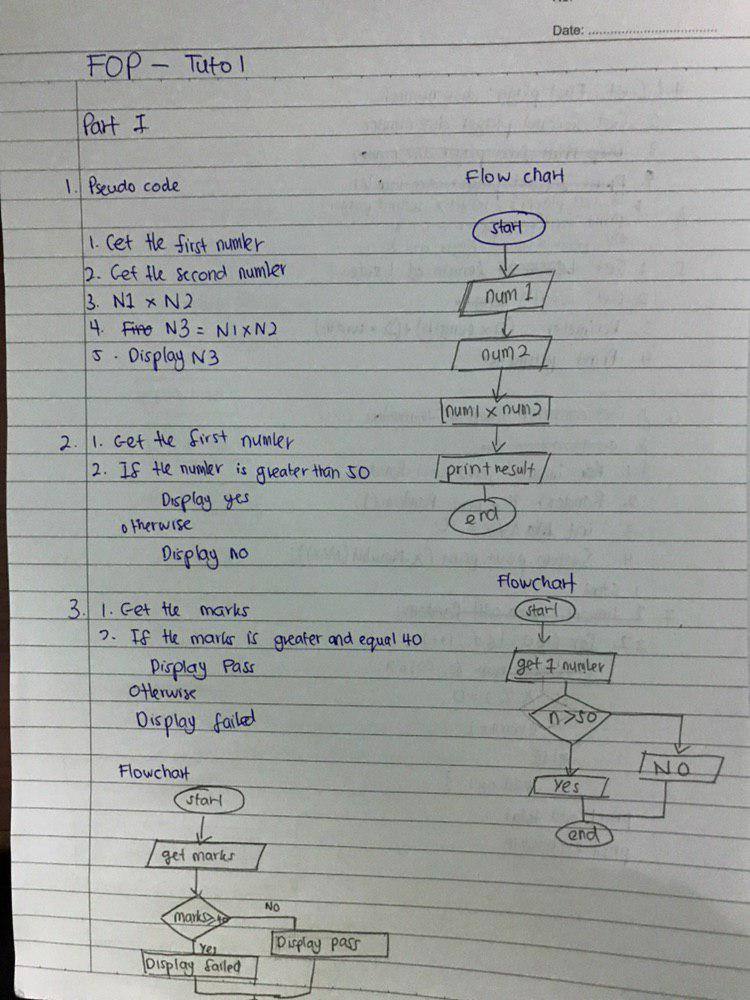 Date:
FOP - Tuto 1
Part I
1. Pseudo code
1. Get the first number
2. Get the second number
3. N1 x N2
4. N3 = N1 x N2
5. Display N3
Flow chart
start
num 1
num 2
num1 x num2
print result
end
2. 1. Get the first number
2. If the number is greater than 50
Display yes
otherwise
Display no
Flowchart
start
get 1 number
n>50
NO
Yes
end
3. 1. Get the marks
2. If the marks is greater and equal 40
Display Pass
Otherwise
Display failed
Flowchart
start
get marks
marks≥40
NO
Yes
Display pass
Display failed